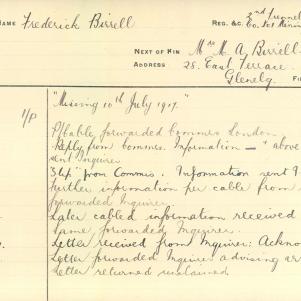 NAME Frederick Birrell
REG. &C. 2nd Tunnel
Co. 1st
NEXT OF KIN Mrs M. A. Birrell
ADDRESS 28. East Terrace
Glenelg.
"Missing 10th July 1917."
1/P P/Cable forwarded Commrs London
Reply from Commrs. Information — " above
sent Inquirer
from Commis. Information sent
further information per cable from
forwarded Inquirer
Later cabled information received
Same forwarded Inquirer.
Letter received from Inquirer: Ackno
Letter forwarded Inquirer advising
Letter returned unclaimed